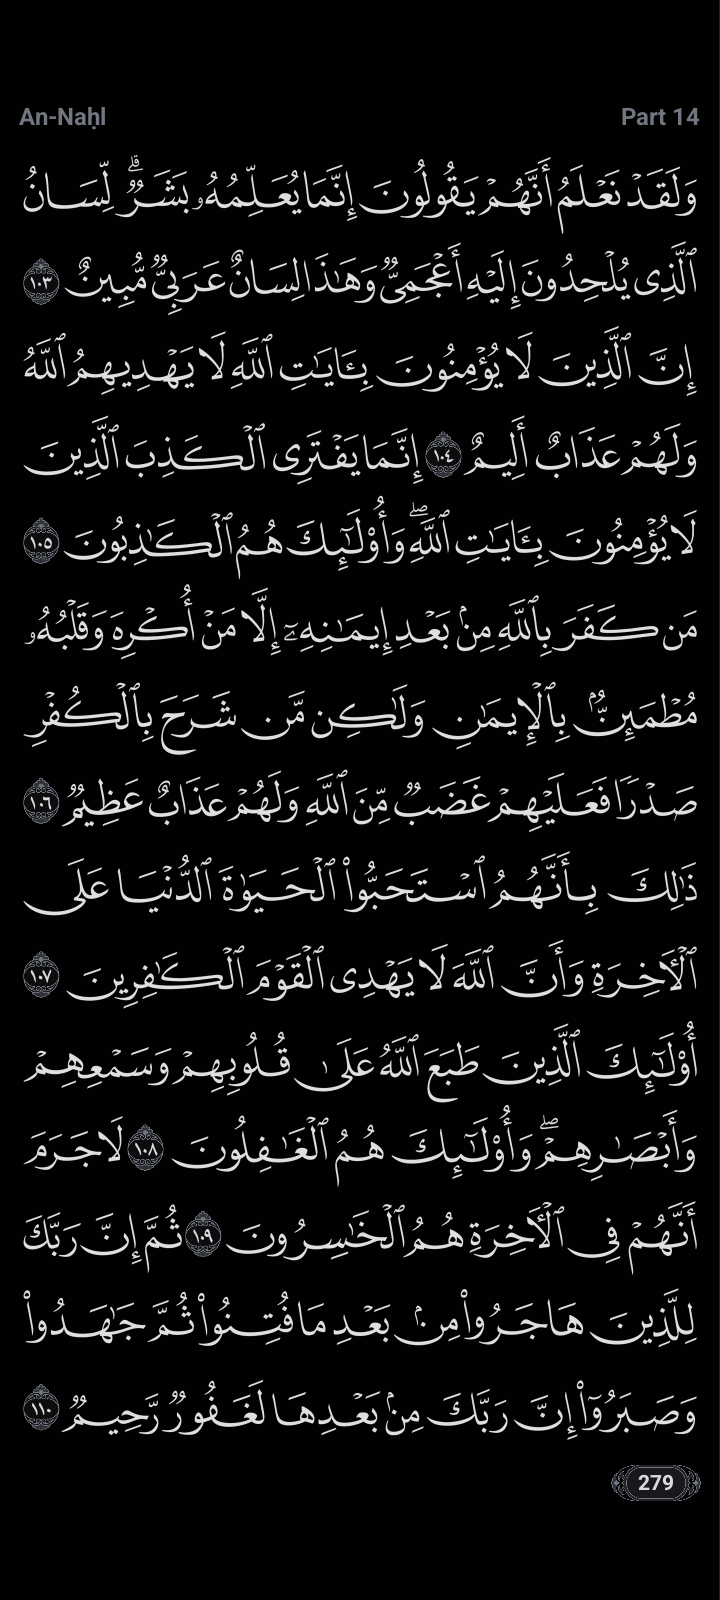 An-Naḥl
Part 14
وَلَقَدۡ نَعۡلَمُ أَنَّهُمۡ يَقُولُونَ إِنَّمَا يُعَلِّمُهُۥ بَشَرٞۗ لِّسَانُ
ٱلَّذِي يُلۡحِدُونَ إِلَيۡهِ أَعۡجَمِيّٞ وَهَٰذَا لِسَانٌ عَرَبِيّٞ مُّبِينٌ ١٠٣
إِنَّ ٱلَّذِينَ لَا يُؤۡمِنُونَ بِـَٔايَٰتِ ٱللَّهِ لَا يَهۡدِيهِمُ ٱللَّهُ
وَلَهُمۡ عَذَابٌ أَلِيمٌ ١٠٤ إِنَّمَا يَفۡتَرِي ٱلۡكَذِبَ ٱلَّذِينَ
لَا يُؤۡمِنُونَ بِـَٔايَٰتِ ٱللَّهِۖ وَأُوْلَٰٓئِكَ هُمُ ٱلۡكَٰذِبُونَ ١٠٥
مَن كَفَرَ بِٱللَّهِ مِنۢ بَعۡدِ إِيمَٰنِهِۦٓ إِلَّا مَنۡ أُكۡرِهَ وَقَلۡبُهُۥ
مُطۡمَئِنُّۢ بِٱلۡإِيمَٰنِ وَلَٰكِن مَّن شَرَحَ بِٱلۡكُفۡرِ
صَدۡرٗا فَعَلَيۡهِمۡ غَضَبٞ مِّنَ ٱللَّهِ وَلَهُمۡ عَذَابٌ عَظِيمٞ ١٠٦
ذَٰلِكَ بِأَنَّهُمُ ٱسۡتَحَبُّواْ ٱلۡحَيَوٰةَ ٱلدُّنۡيَا عَلَى
ٱلۡأٓخِرَةِ وَأَنَّ ٱللَّهَ لَا يَهۡدِي ٱلۡقَوۡمَ ٱلۡكَٰفِرِينَ ١٠٧
أُوْلَٰٓئِكَ ٱلَّذِينَ طَبَعَ ٱللَّهُ عَلَىٰ قُلُوبِهِمۡ وَسَمۡعِهِمۡ
وَأَبۡصَٰرِهِمۡۖ وَأُوْلَٰٓئِكَ هُمُ ٱلۡغَٰفِلُونَ ١٠٨ لَا جَرَمَ
أَنَّهُمۡ فِي ٱلۡأٓخِرَةِ هُمُ ٱلۡخَٰسِرُونَ ١٠٩ ثُمَّ إِنَّ رَبَّكَ
لِلَّذِينَ هَاجَرُواْ مِنۢ بَعۡدِ مَا فُتِنُواْ ثُمَّ جَٰهَدُواْ
وَصَبَرُوٓاْ إِنَّ رَبَّكَ مِنۢ بَعۡدِهَا لَغَفُورٞ رَّحِيمٞ ١١٠
279